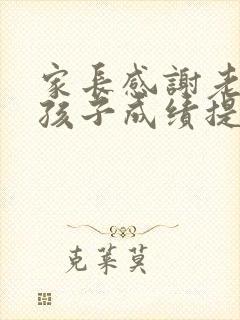 家長感謝老
孩子成績提
克萊莫